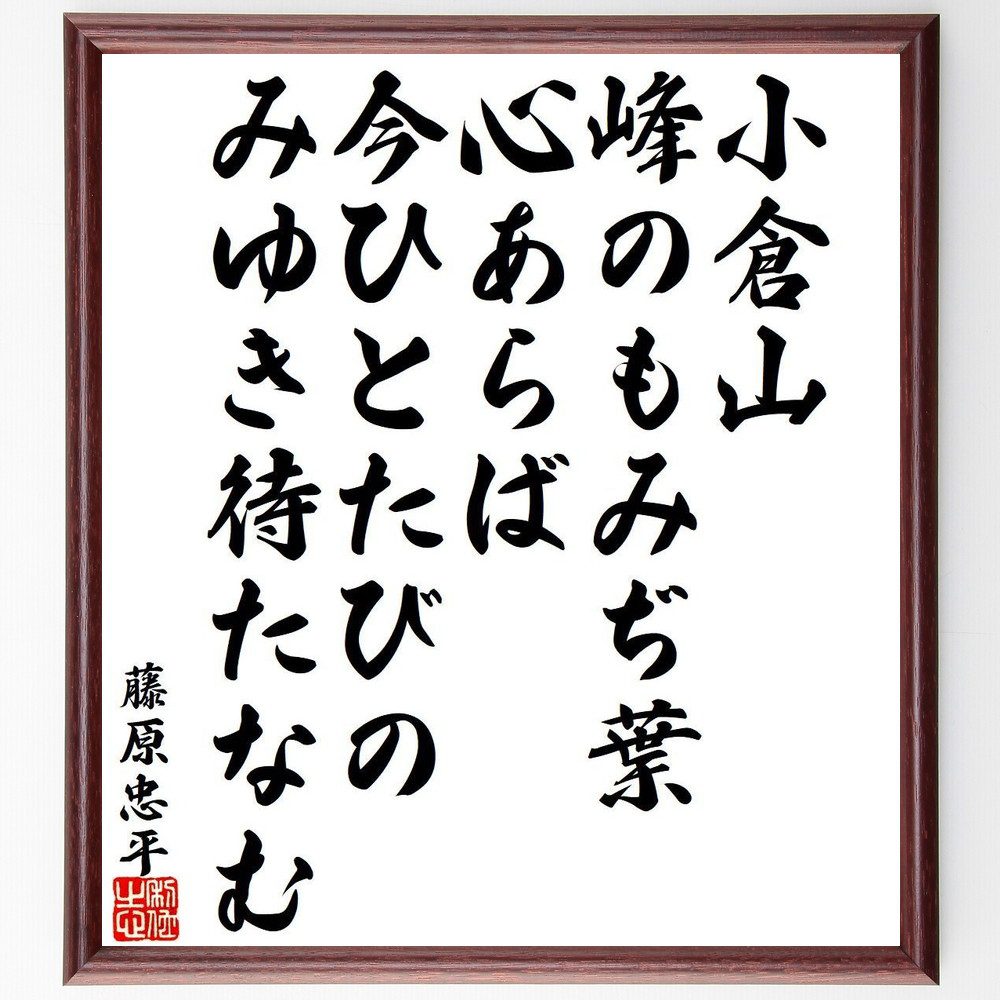 小倉山
峰のもみぢ葉
心あらば
今ひとたびの
みゆき待たなむ
藤原忠平